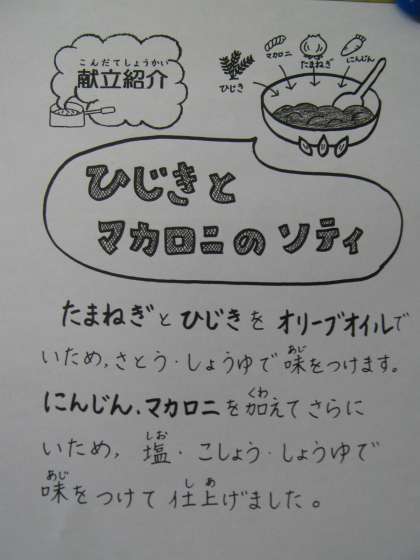 こんだてしょうかい
献立紹介
ひじき
マカロニ
たまねぎ
にんじん
ひじきと
マカロニのソティ
たまねぎとひじきをオリーブオイルで
いため,さとう・しょうゆで味をつけます。
あじ
にんじん,マカロニを加えてさらに
くわ
いため,塩・こしょう・しょうゆで
しお
味をつけて仕上げました。
あじ し あ